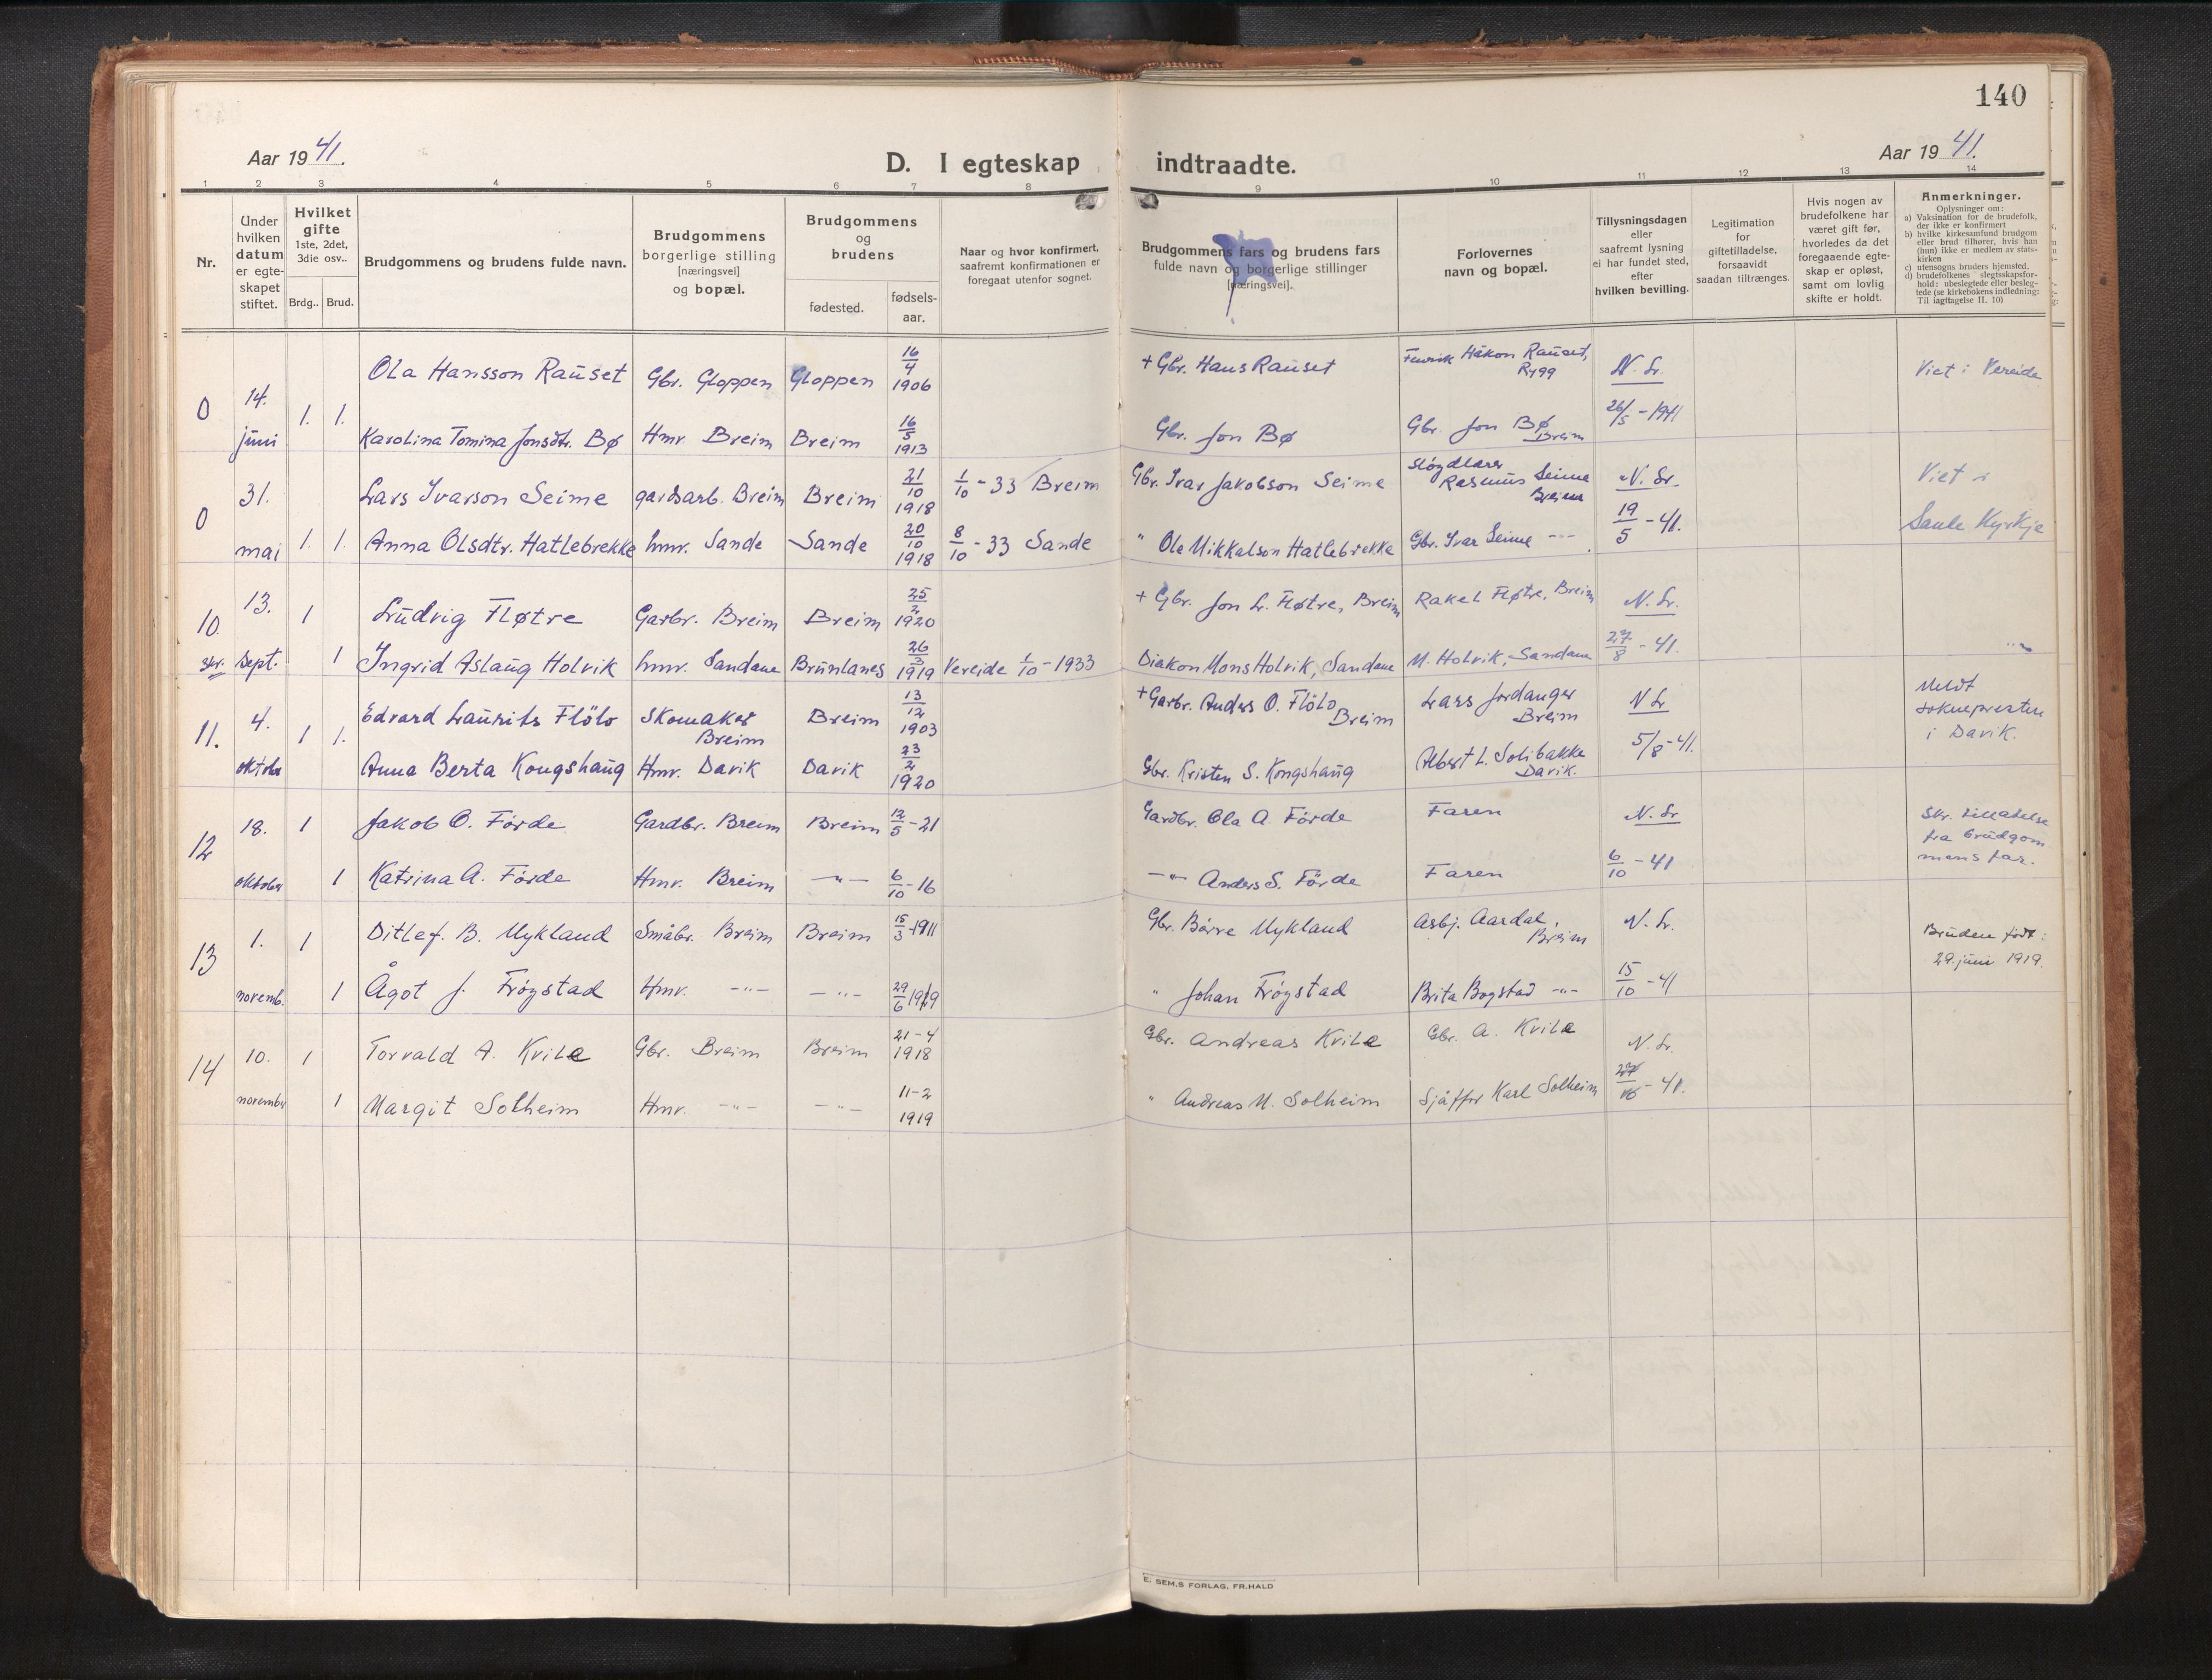 140
Aar 1941.
D. I egteskap indtraadte.
Aar 1941.
1 2 3 4 5 6 7 8 9 10 11 12 13 14
Nr.
Under hvilken datum er egte-skapet stiftet.
Hvilket gifte 1ste, 2det, 3die osv..
Brdg.. Brud.
Brudgommens og brudens fulde navn.
Brudgommens borgerlige stilling [næringsvei] og bopæl.
Brudgommens og brudens
fødested.
fødsels-aar.
Naar og hvor konfirmert, saafremt konfirmationen er foregaat utenfor sognet.
Brudgommens fars og brudens fars fulde navn og borgerlige stillinger [næringsvei].
Forlovernes navn og bopæl.
Tillysningsdagen eller saafremt lysning ei har fundet sted, efter hvilken bevilling.
Legitimation for giftetilladelse, forsaavidt saadan tiltrænges.
Hvis nogen av brudefolkene har været gift før, hvorledes da det foregaaende egte-skap er opløst, samt om lovlig skifte er holdt.
Anmerkninger.
Oplysninger om:
a) Vaksination for de brudefolk, der ikke er konfirmert
b) hvilke kirkesamfund brudgom eller brud tilhører, hvis han (hun) ikke er medlem av stats-kirken
c) utensogns bruders hjemsted.
d) brudefolkenes slegtsskapsfor-hold: ubeslegtede eller besleg-tede (se kirkebokens indledning: Til iagttagelse II. 10)
0 14. juni 1. 1.
Ola Hansson Rauset Gbr. Gloppen Gloppen 16/4 1906 + Gbr. Hans Rauset Håkon Rauset, Rygg N. Lr. Viet i Vereide
Karolina Tomina Jonsdtr. Bø Hmv. Breim Breim 16/5 1913 Gbr. Jon Bø Gbr. Jon Bø Breim 26/5 - 1941
0 31. mai 1. 1.
Lars Ivarson Seime gardsarb. Breim Breim 21/10 1918 1/10 - 33 Breim Gbr. Ivar Jakobson Seime Sløydlærer Rasmus Seime Breim N. Lr. Viet i
Anna Olsdtr. Hatlebrekke hmv. Sande Sande 20/10 1918 8/10 - 33 Sande " Ole Mikkalson Hatlebrekke Gbr. Ivar Seime -"- 19/5 - 41. Sande Kyrkje
10. skr. 13. sept. 1 1
Ludvig Fløtre Garbr. Breim Breim 25/2 1920 + Gbr. Jon L. Fløtre, Breim Rakel Fløtre, Breim N. Lr.
Ingrid Aslaug Holvik hmv. Sandane Brunlanes 26/3 1919 Vereide 1/10 - 1933 Diakon Mons Holvik, Sandane M. Holvik, Sandane 27/8 - 41.
11. 4. oktober 1 1.
Edvard Laurits Flölo Skomaker Breim Breim 13/12 1903 + Garbr. Anders O. Flölo Breim Lars Jordanger Breim N Lr Meldt soknepresten i Davik.
Anna Berta Kongshaug Hmv. Davik Davik 23/2 1920 Gbr. Kristen S. Kongshaug Albert L. Solibakke Davik. 5/8 - 41.
12 18. oktober 1 1
Jakob O. Förde Gardbr. Breim Breim 12/5 - 21 Gardbr. Ola A. Förde Faren N. Lr Skr. tillatelse fra brudgommens far.
Katrina A. Förde Hmv. Breim -"- 6/10 - 16 -"- Anders S. Förde Faren 6/10 - 41
13 1. novemb. 1 1
Ditlef. B. Mykland Småbr. Breim Breim 15/3 - 1911 Gbr. Børre Mykland Asbj. Aardal, Breim N. Lr. Bruden født: 29. juni 1919.
Ågot J. Fröystad Hmv. -"- -"- 29/6 1919 " Johan Fröystad Brita Bogstad -"- 15/10 - 41
14 10. november 1 1
Torvald A. Kvile Gbr. Breim Breim 21-4 1918 Gbr. Andreas Kvile Gbr. A. Kvile N. Lr.
Margit Solheim Hmv. -"- -"- 11-2 1919 " Andreas M. Solheim Sjåffør Karl Solheim 27/10 - 41.
E. SEM.S FORLAG, FR.HALD